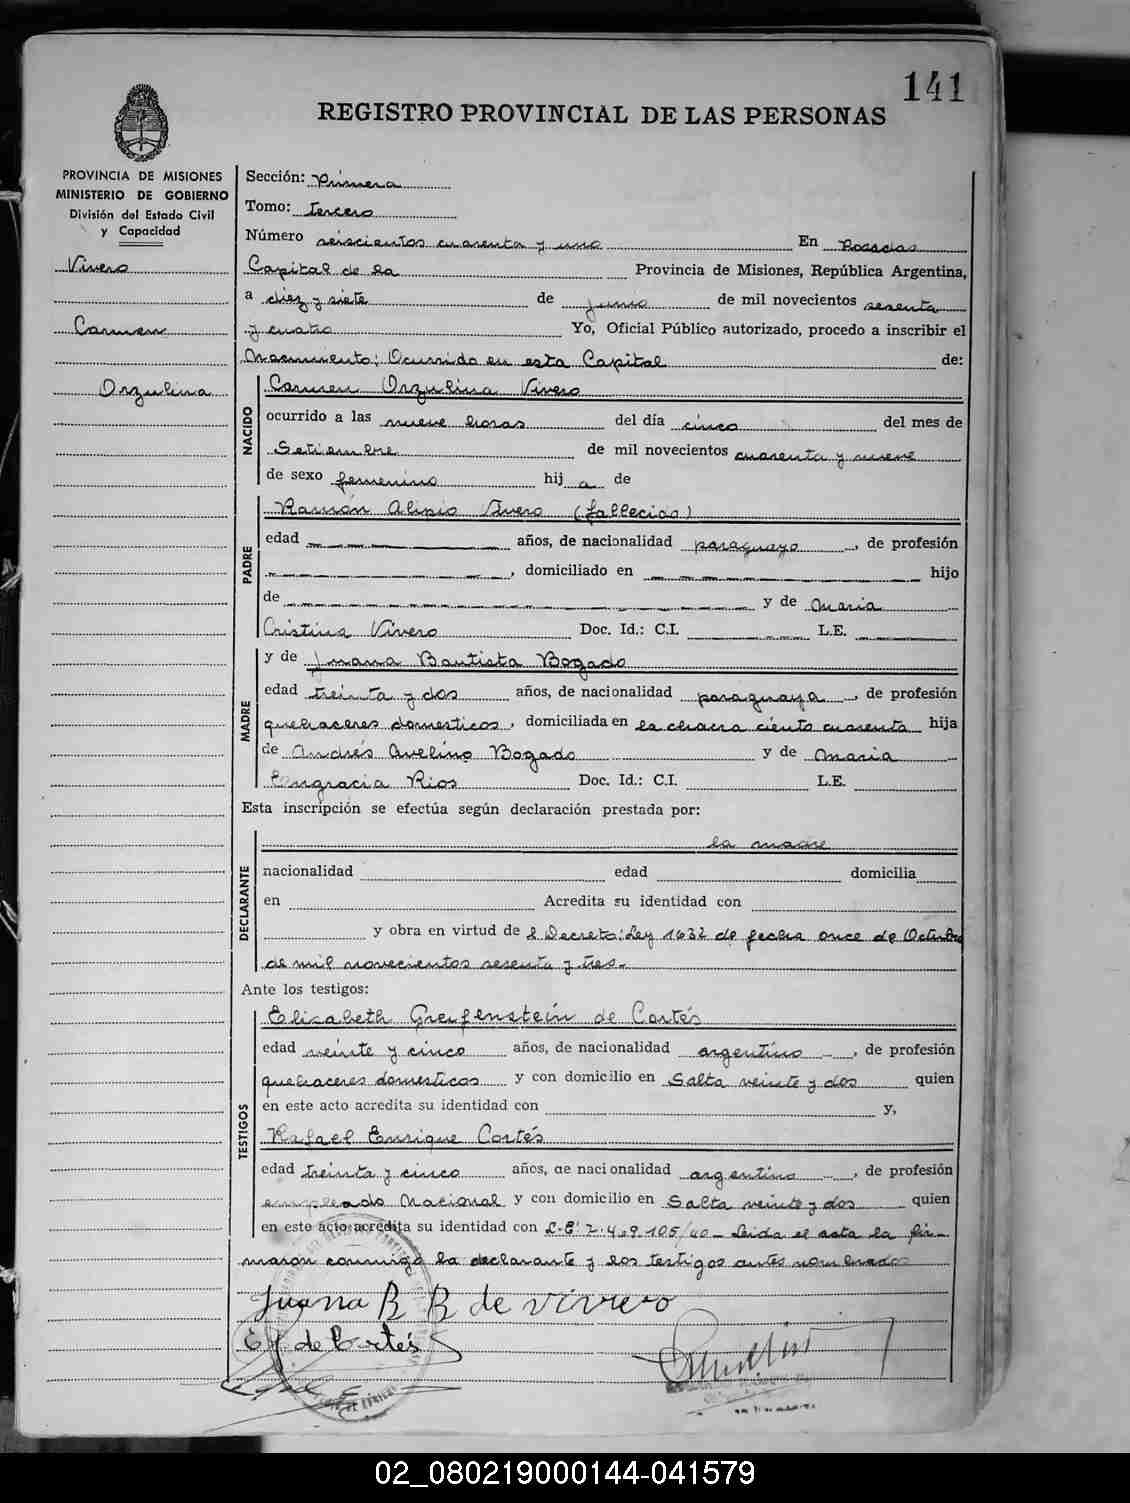 141
REGISTRO PROVINCIAL DE LAS PERSONAS
PROVINCIA DE MISIONES
MINISTERIO DE GOBIERNO
División del Estado Civil
y Capacidad
Vivero
Carmen
Orzulina
Sección: Primera
Tomo: Tercero
Número seiscientos cuarenta y uno En Posadas
Capital de la Provincia de Misiones, República Argentina,
a diez y siete de junio de mil novecientos sesenta
y cuatro Yo, Oficial Público autorizado, procedo a inscribir el
Nacimiento: Ocurrido en esta Capital de:
NACIDO
Carmen Orzulina Vivero
ocurrido a las nueve horas del día cinco del mes de
Setiembre de mil novecientos cuarenta y nueve
de sexo femenino hij a de
PADRE
Ramón Alipio Vivero (fallecido)
edad años, de nacionalidad paraguayo, de profesión
, domiciliado en hijo
de y de Maria
Cristina Vivero Doc. Id.: C.I. L.E.
MADRE
y de Juana Bautista Bogado
edad treinta y dos años, de nacionalidad paraguaya, de profesión
quehaceres domesticos, domiciliada en la chacra ciento cuarenta hija
de Andrés Avelino Bogado y de Maria
Engracia Rios Doc. Id.: C.I. L.E.
Esta inscripción se efectúa según declaración prestada por:
DECLARANTE
la madre
nacionalidad edad domicilia
en Acredita su identidad con
y obra en virtud de l Decreto: Ley 1632 de fecha once de Octubre
de mil novecientos sesenta y tres.-
Ante los testigos:
TESTIGOS
Elisabeth Greifenstein de Cortés
edad veinte y cinco años, de nacionalidad argentino -, de profesión
quehaceres domesticos y con domicilio en Salta veinte y dos quien
en este acto acredita su identidad con y,
Rafael Enrique Cortés
edad treinta y cinco años, de nacionalidad argentino -, de profesión
empleado Nacional y con domicilio en Salta veinte y dos quien
en este acto acredita su identidad con L-E: 2.469.105/40 - Leida el acta la fir-
maron conmigo la declarante y los testigos antes nombrados
Juana B B de vivero
E G. de Cortés
02_080219000144-041579